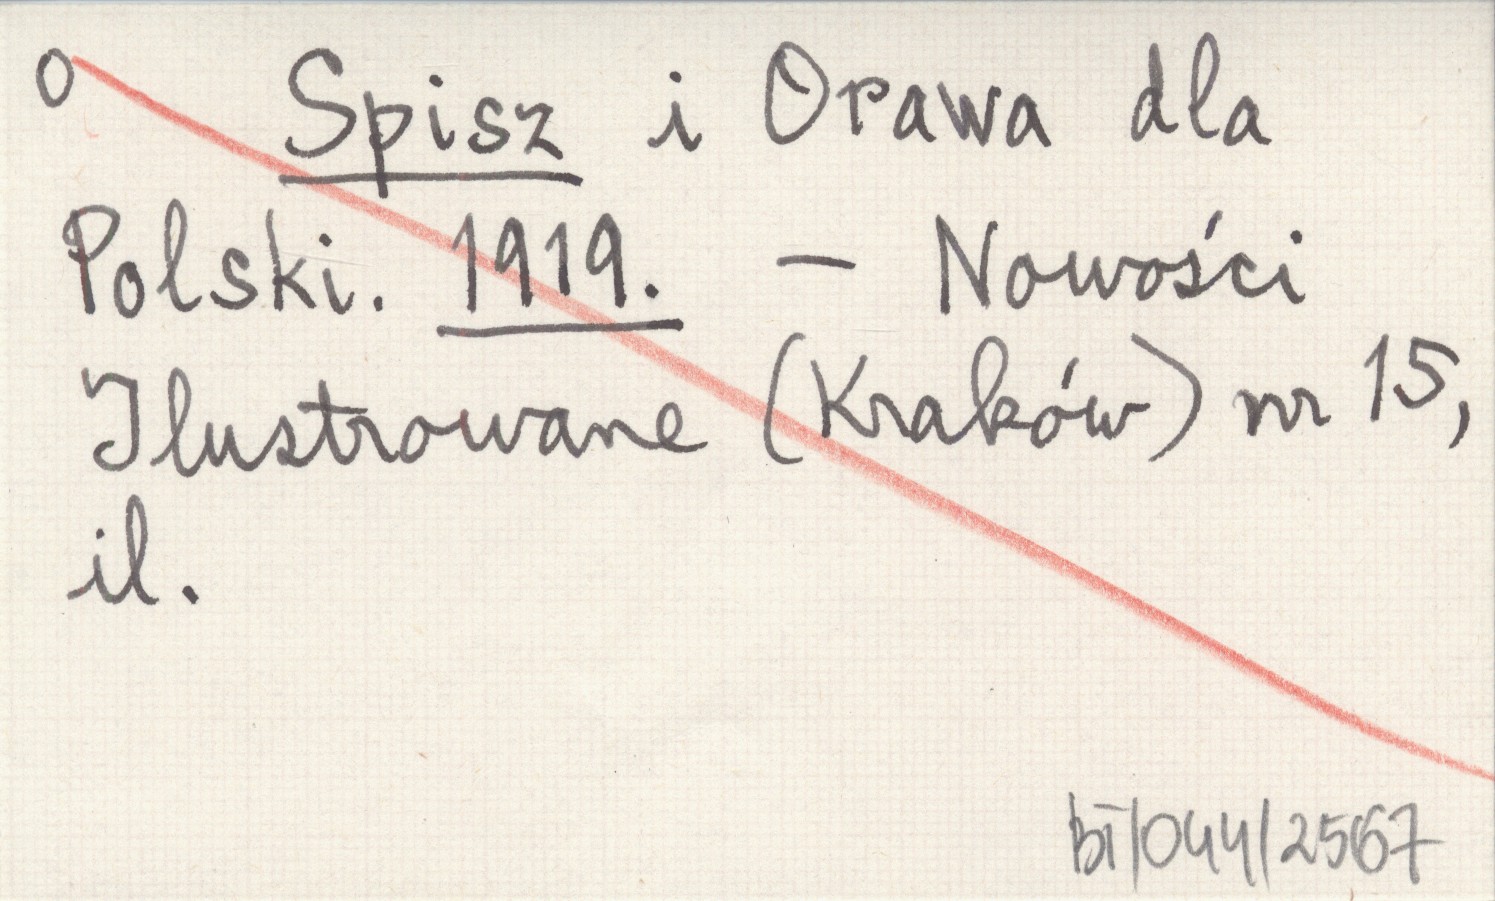 O Spisz i Orawa dla
Polski. 1919. — Nowości
Ilustrowane (Kraków) nr 15,
il.
bī/044/2567